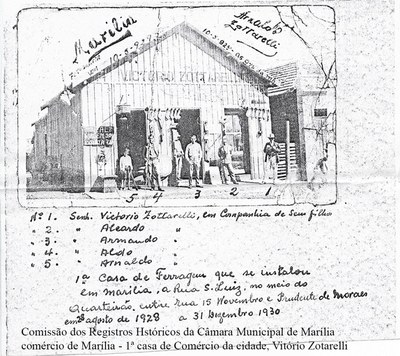 Marilia
10-3-929
Araldo Zottarelli
10-3-929
VICTORIO ZOTTARELLI
5 4 3 2 1
Nº 1. Senh. Victorio Zottarelli, em Companhia de Seus filhos
" 2. " Alcardo "
" 3. " Armando "
" 4. " Aldo "
" 5. " Arnaldo "
1ª Casa de Ferragem que se instalou
em Marilia, a Rua S. Luiz, no meio do
Quarteirão, entre rua 15 Novembro e Prudente de Moraes
em agosto de 1928 a 31 Dezembro 1930
Comissão dos Registros Hstóricos da Câmara Municipal de Marília
comércio de Marília - 1ª casa de Comércio da cidade, Vitório Zotarelli